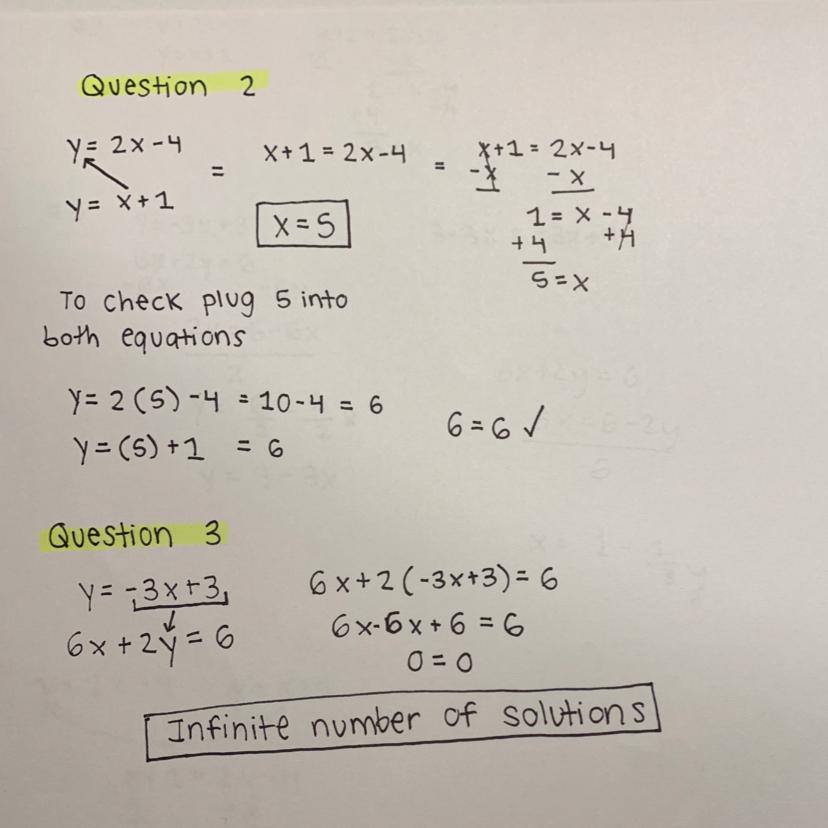 Question 2
y = 2x - 4
y = x + 1
=
x + 1 = 2x - 4
x = 5
=
x + 1 = 2x - 4
- x - x
1 = x - 4
+ 4 + 4
5 = x
To check plug 5 into
both equations
y = 2 (5) - 4 = 10 - 4 = 6
y = (5) + 1 = 6
6 = 6 ✓
Question 3
y = -3x + 3
6x + 2y = 6
6x + 2 (-3x + 3) = 6
6x - 6x + 6 = 6
0 = 0
Infinite number of solutions